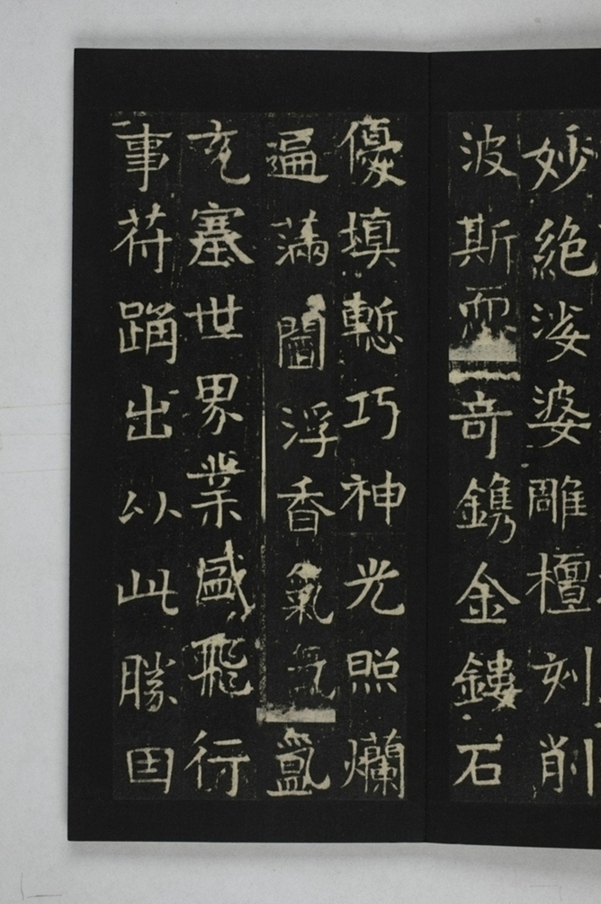 妙絶娑婆雕檀刻削
波斯而奇鐫金鏤石
優填慙巧神光照爛
遍滿閻浮香氣氳
充塞世界業感飛行
事苻踊出以此勝因